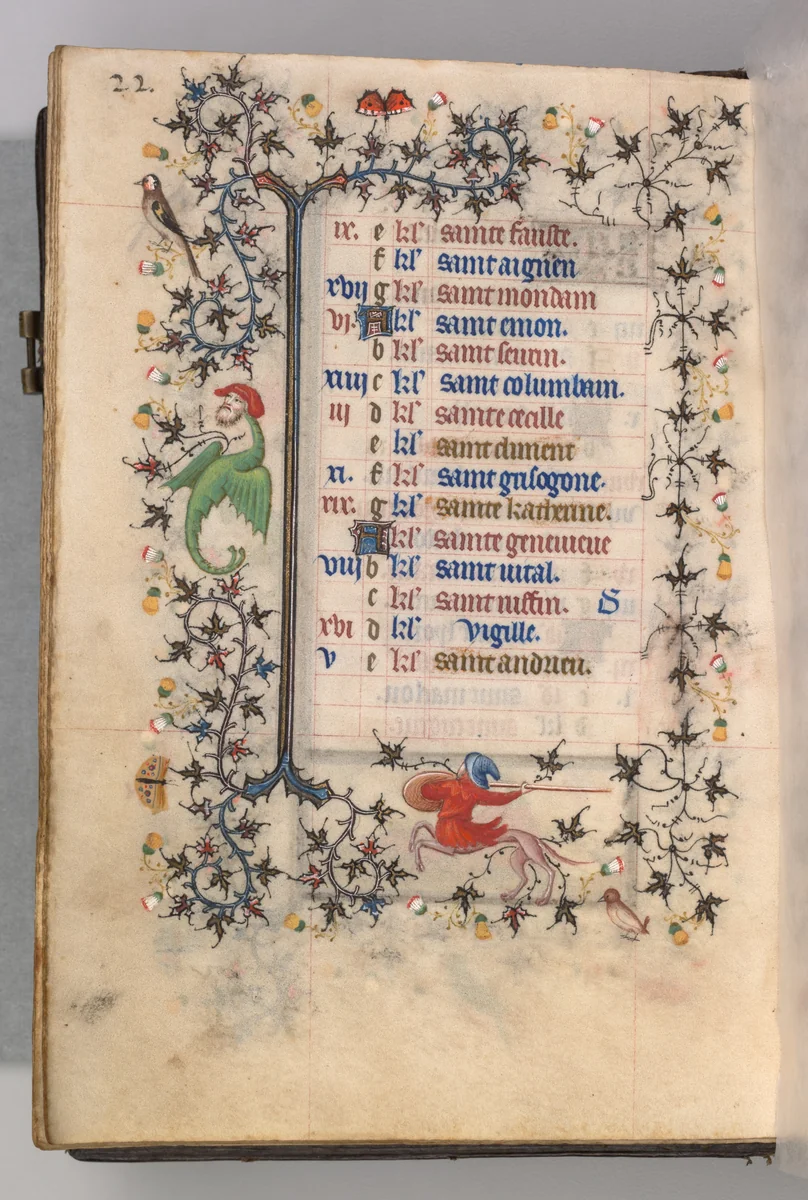 22.
ix. e kl' sainte fauste.
f kl' saint aignen
xvij g kl' saint mondain
vj. A kl' saint emon.
b kl' saint seurin.
xiiij c kl' saint columbain.
iij d kl' sainte cecille
e kl' saint climent
xi. f kl' saint grisogone.
xix. g kl' sainte katherine.
A kl' sainte geneuieue
viij b kl' saint uital.
c kl' saint ruffin. S
xvi d kl' vigille.
v e kl' saint andrieu.